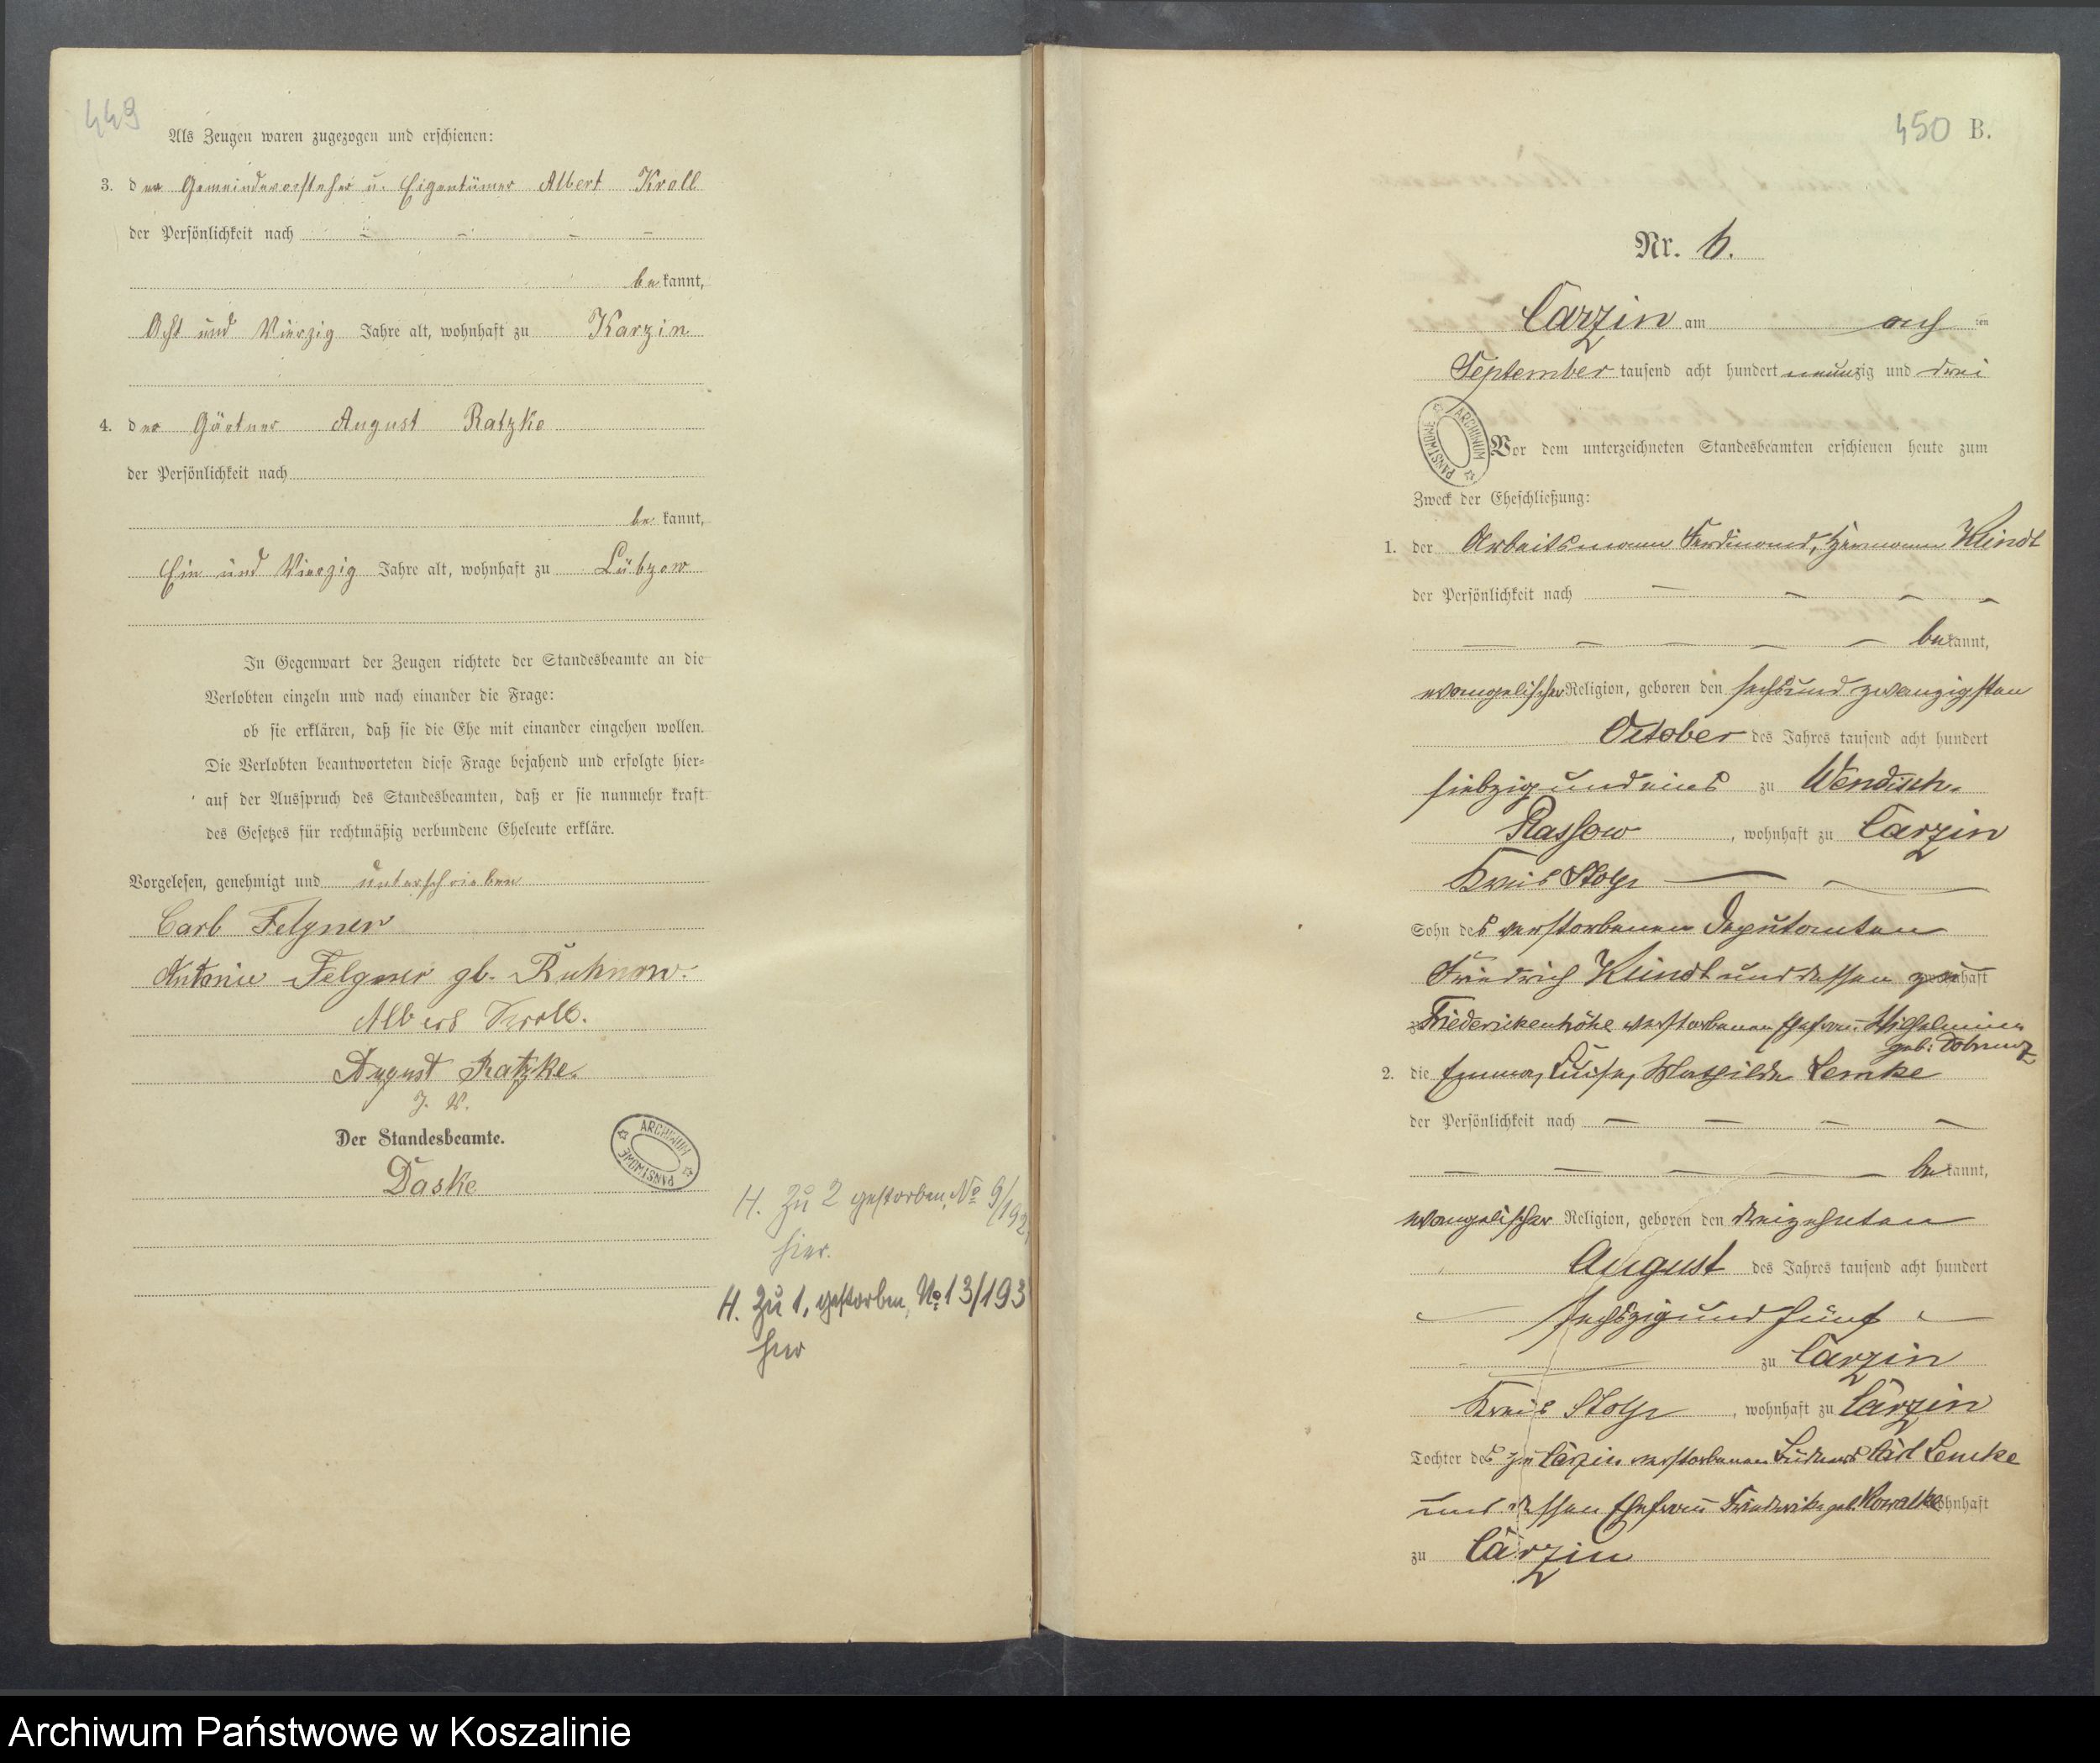 449
Als Zeugen waren zugezogen und erschienen:
3. der Gemeindevorsteher u. Eigentümer Albert Kroll
der Persönlichkeit nach
bekannt,
Acht und Vierzig Jahre alt, wohnhaft zu Karzin
4. der Gärtner August Ratzke
der Persönlichkeit nach
bekannt,
Ein und Vierzig Jahre alt, wohnhaft zu Lübzow
In Gegenwart der Zeugen richtete der Standesbeamte an die
Verlobten einzeln und nach einander die Frage:
ob sie erklären, daß sie die Ehe mit einander eingehen wollen.
Die Verlobten beantworteten diese Frage bejahend und erfolgte hier-
auf der Ausspruch des Standesbeamten, daß er sie nunmehr kraft
des Gesetzes für rechtmäßig verbundene Eheleute erkläre.
Vorgelesen, genehmigt und unterschrieben
Carl Felgner
Antonie Felgner gb. Ruhnow.
Albert Kroll.
August Ratzke.
J. V.
Der Standesbeamte.
Daske
ARCHIWUM PAŃSTWOWE
H. Zu 2 gestorben, No 9/192
hier.
H. Zu 1, gestorben, No 13/193
hier
450 B.
Nr. 6.
Carzin am ten
September tausend acht hundert neunzig und drei
ARCHIWUM PAŃSTWOWE
Vor dem unterzeichneten Standesbeamten erschienen heute zum
Zweck der Eheschließung:
1. der Arbeitsmann Ferdinand, Hermann Klindt
der Persönlichkeit nach
bekannt,
evangelischer Religion, geboren den sechsund zwanzigsten
October des Jahres tausend acht hundert
siebzig und eins zu Wendisch-
Plassow, wohnhaft zu Carzin
Kreis Stolp
Sohn des verstorbenen Deputanten
Friedrich Klindt und dessen zu
Friederickenhöhe verstorbenen Ehefrau Wilhelmine
geb:
2. die Emma, Luise, Mathilde Lemke
der Persönlichkeit nach
bekannt,
evangelischer Religion, geboren den dreizehnten
August des Jahres tausend acht hundert
sechszig und fünf
zu Carzin
Kreis Stolp, wohnhaft zu Carzin
Tochter des zu Carzin verstorbenen Büdners Carl Lemke
und dessen Ehefrau Friederike geb. Kowalke wohnhaft
zu Carzin
Archiwum Państwowe w Koszalinie